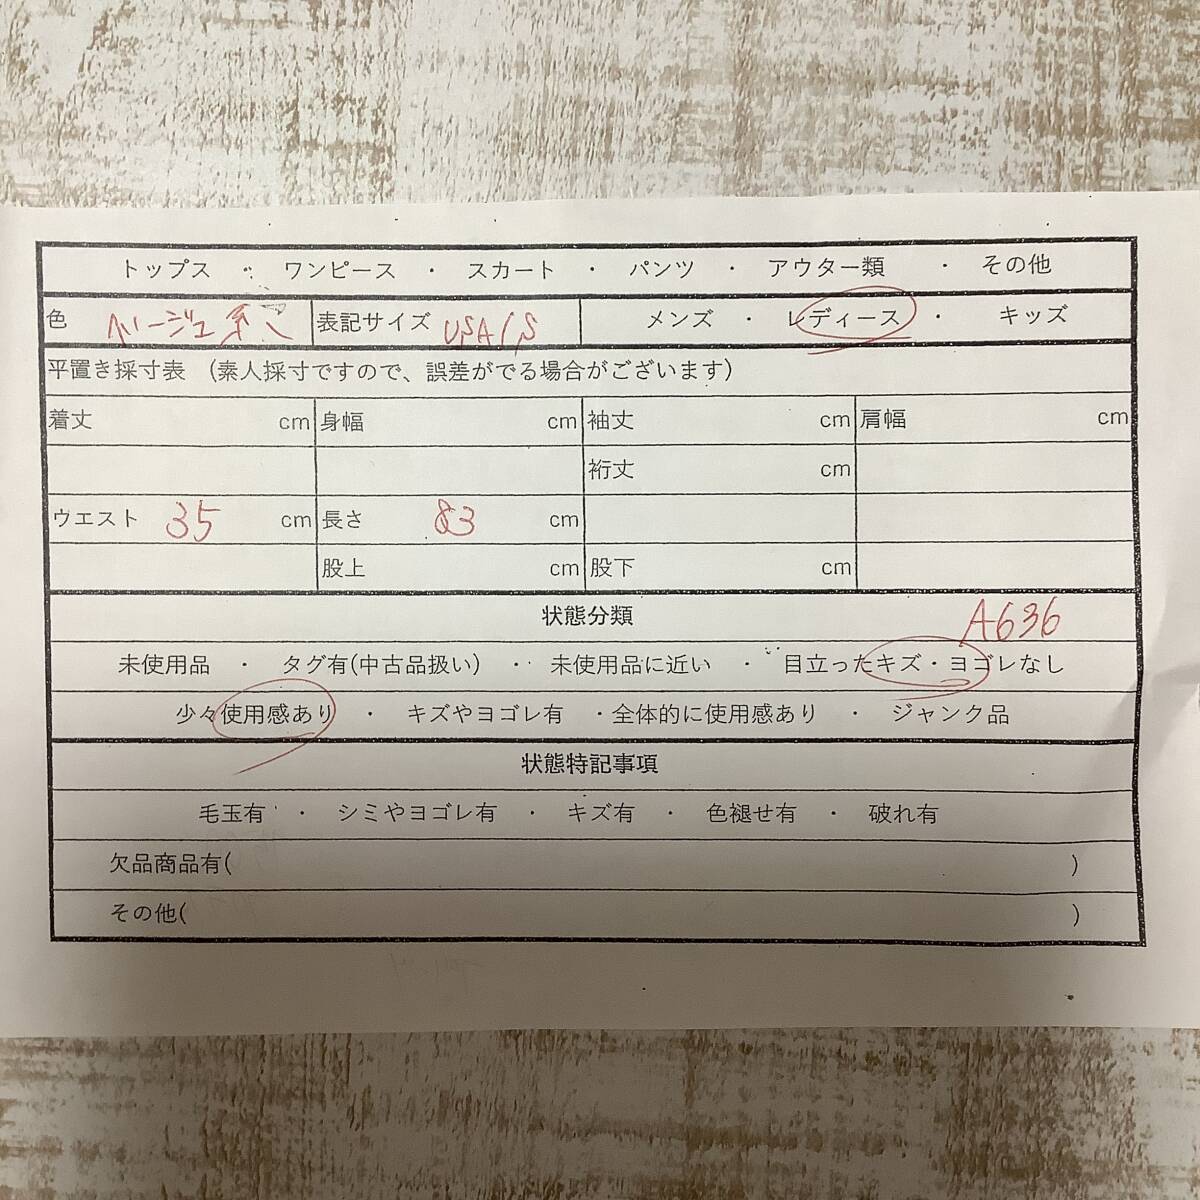 トップス ・ ワンピース ・ スカート ・ パンツ ・ アウター類 ・ その他
色 ベージュ系 表記サイズ USA/S メンズ ・ レディース ・ キッズ
平置き採寸表 （素人採寸ですので、誤差がでる場合がございます）
着丈 cm 身幅 cm 袖丈 cm 肩幅 cm
裄丈 cm
ウエスト 35 cm 長さ 83 cm
股上 cm 股下 cm
状態分類 A636
未使用品 ・ タグ有(中古品扱い) ・ 未使用品に近い ・ 目立ったキズ・ヨゴレなし
少々使用感あり ・ キズやヨゴレ有 ・全体的に使用感あり ・ ジャンク品
状態特記事項
毛玉有 ・ シミやヨゴレ有 ・ キズ有 ・ 色褪せ有 ・ 破れ有
欠品商品有( )
その他( )